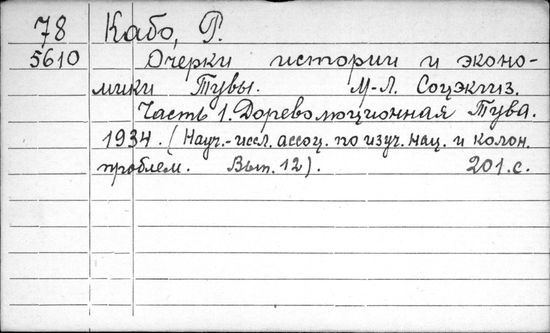 78 Кабо, Р.
5610 Очерки истории и эконо-
мики Тувы. М-Л. Соцэкгиз.
Часть 1. Дореволюционная Тува.
1934. (Науч.-иссл. ассоц. по изуч. нац. и колон.
проблем. Вып. 12). 201 с.